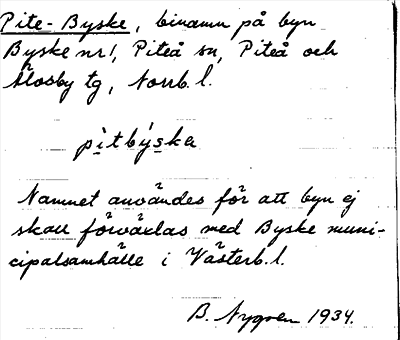 Pite-Byske, binamn på byn
Byske nr 1, Piteå sn, Piteå och
Älvsby tg, Norrb. l.
pìtbýska
Namnet användes för att byn ej
skall förväxlas med Byske muni-
cipalsamhälle i Västerb. l.
B. Nygren 1934.